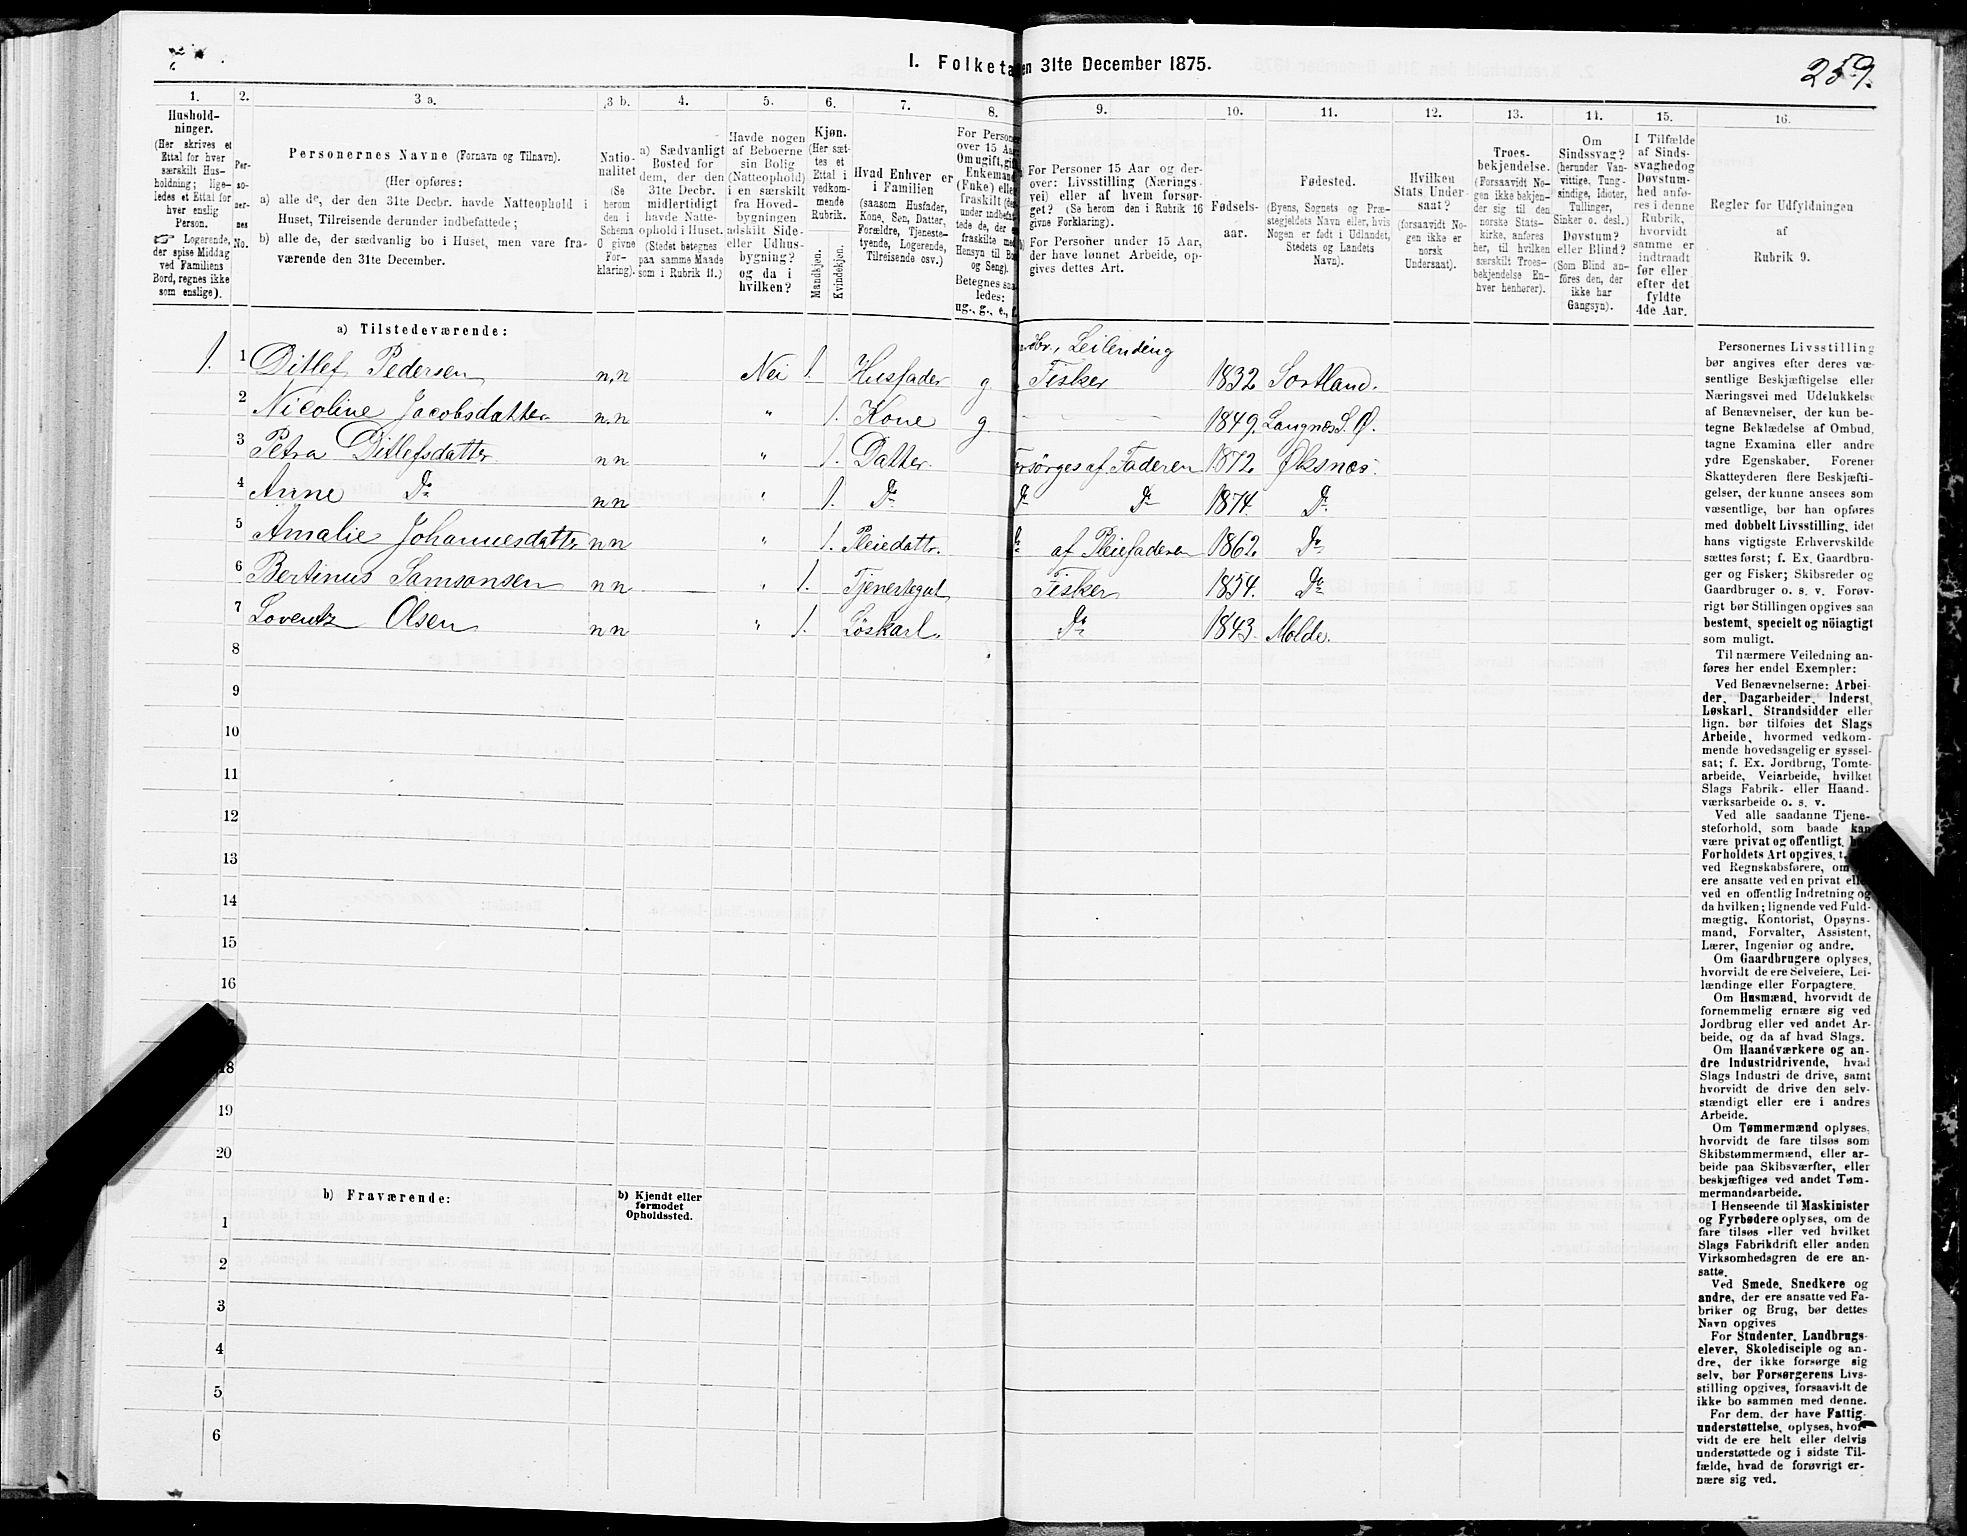 I. Folketa en 31te December 1875.
259.
1. 2. 3 a. 3 b. 4. 5. 6. 7. 8. 9. 10. 11. 12. 13. 14. 15. 16.
Hushold-
ninger.
(Her skrives et
Ettal for hver
særskilt Hus-
holdning; lige-
ledes et Ettal for
hver enslig
Person.
☞ Logerende,
der spise Middag
ved Familiens
Bord, regnes ikke
som enslige).
Per-
so-
ner-
nes
No.
Personernes Navne (Fornavn og Tilnavn).
(Her opføres:
a) alle de, der den 31te Decbr. havde Natteophold i
Huset, Tilreisende derunder indbefattede;
b) alle de, der sædvanlig bo i Huset, men vare fra-
værende den 31te December.
Natio-
nalitet
(Se
herom
den i
Schema
O givne
For-
klaring).
a) Sædvanligt
Bosted for
dem, der den
31te Decbr.
midlertidigt
havde Natte-
ophold i Huset.
(Stedet betegnes
paa samme Maade
som i Rubrik 11.)
Havde nogen
af Beboerne
sin Bolig
(Natteophold)
i en særskilt
fra Hoved-
bygningen
adskilt Side-
eller Udhus-
bygning?
og da i
hvilken?
Kjøn.
(Her sæt-
tes et
Ettal i
vedkom-
mende
Rubrik.
Mandkjøn.
Kvindekjøn.
Hvad Enhver er
i Familien
(saasom Husfader,
Kone, Søn, Datter,
Forældre, Tjeneste-
tyende, Logerende,
Tilreisende osv.)
For Person
over 15 Aar
Om ugift, gift
Enkemand
(Enke) elle
fraskilt (de
under indbefat
tede de, der e
fraskilte med
Hensyn til Bo
og Seng).
Betegnes saa
ledes:
ug., g., e., f.
a) For Personer 15 Aar og der-
over: Livsstilling (Nærings-
vei) eller af hvem forsør-
get? (Se herom den i Rubrik 16
givne Forklaring).
b) For Personer under 15 Aar,
der have lønnet Arbeide, op-
gives dettes Art.
Fødsels-
aar.
Fødested.
(Byens, Sognets og Præ-
stegjeldets Navn eller, hvis
Nogen er født i Udlandet,
Stedets og Landets
Navn).
Hvilken
Stats Under-
saat?
(forsaavidt No-
gen ikke er
norsk
Undersaat).
Troes-
bekjendelse.
(Forsaavidt No-
gen ikke bekjen-
der sig til den
norske Stats-
kirke, anføres
her, til hvilken
særskilt Troes-
bekjendelse En-
hver henhører).
Om
Sindssvag?
(herunder Van-
vittige, Tung-
sindige, Idioter,
Tullinger,
Sinker o. desl.)
Døvstum?
eller Blind?
(Som Blind an-
føres den, der
ikke har
Gangsyn).
I Tilfælde
af Sinds-
svaghed og
Døvstum-
hed anfø-
res i denne
Rubrik,
hvorvidt
samme er
indtraadt
før eller
efter det
fyldte
4de Aar.
Regler for Udfyldningen
af
Rubrik 9.
a) Tilstedeværende:
1. 1 Ditlef Pedersen n.n Nei 1. Husfader g dbr., Leilending Fisker 1832 Sortland.
2 Nicoline Jacobsdatter n.n " 1. Kone g 1849. Langnes S. Ø.
3 Petra Ditlefsdatter n n " 1. Datter. orsørges af Faderen 1872. Øksnes.
4 Anne Do n n " 1. Do Do Do 1874. Do
5 Amalie Johannesdatter n n " 1. Pleiedattr. Do af Pleiefaderen 1862. Do
6 Bertinus Samsonsen n n " 1. Tjenestegut Fisker 1854. Do
7 Lorentz Olsen n n " 1. Løskarl. Do 1843. Molde.
8
9
10
11
12
13
14
15
16
18
19
20
b) Fraværende:
b) Kjendt eller
formodet
Opholdssted.
1
2
3
4
5
6
Personernes Livsstilling
bør angives efter deres væ-
sentlige Beskjæftigelse eller
Næringsvei med Udelukkelse
af Benævnelser, der kun be-
tegne Beklædelse af Ombud,
tagne Examina eller andre
ydre Egenskaber. Forener
Skatteyderen flere Beskjæfti-
gelser, der kunne ansees som
væsentlige, bør han opføres
med dobbelt Livsstilling, idet
hans vigtigste Erhvervskilde
sættes først; f. Ex. Gaardbru-
ger og Fisker; Skibsreder og
Gaardbruger o. s. v. Forøv-
rigt bør Stillingen opgives saa
bestemt, specielt og nöiagtigt
som muligt.
Til nærmere Veiledning an-
føres her endel Exempler:
Ved Benævnelserne: Arbei-
der, Dagarbeider, Inderst,
Løskarl, Strandsidder eller
lign. bør tilføies det Slags
Arbeide, hvormed vedkom-
mende hovedsagelig er syssel-
sat; f. Ex. Jordbrug, Tomte-
arbeide, Veiarbeide, hvilket
Slags Fabrik- eller Haand-
værksarbeide o. s. v.
Ved alle saadanne Tjene-
steforhold, som baade kan
være privat og offentligt,
Forholdets Art opgives, t.
ved Regnskabsførere, om
ere ansatte ved en privat elle
ved en offentlig Indretning og
da hvilken; lignende ved Fuld-
mægtig, Kontorist, Opsyns-
mand, Forvalter, Assistent,
Lærer, Ingeniør og andre.
Om Gaardbrugere oplyses,
hvorvidt de ere Selveiere, Lei-
lændinge eller Forpagtere.
Om Husmænd, hvorvidt de
fornemmelig ernære sig ved
Jordbrug eller ved andet Ar-
beide, og da af hvad Slags.
Om Haandværkere og an-
dre Industridrivende, hvad
Slags Industri de drive, samt
hvorvidt de drive den selv-
stændigt eller ere i andres
Arbeide.
Om Tømmermænd oplyses,
hvorvidt de fare tilsøs som
Skibstømmermænd, eller ar-
beide paa Skibsværfter, eller
beskjæftiges ved andet Tøm-
mermandsarbeide.
I Henseende til Maskinister
og Fyrbødere oplyses, om de
fare tilsøs eller ved hvilket
Slags Fabrikdrift eller anden
Virksomhedsgren de ere an-
satte.
Ved Smede, Snedkere og
andre, der ere ansatte ved Fa-
briker og Brug, bør dettes
Navn opgives
For Studenter, Landbrugs-
elever, Skoledisciple og an-
dre, der ikke forsørge sig
selv, bør Forsørgerens Livs-
stilling opgives, forsaavidt de
ikke bo sammen med denne.
For dem, der have Fattig-
understøttelse, oplyses, hvor-
vidt de ere helt eller delvis
understøttede og i sidste Til-
fælde, hvad de forøvrigt er-
nære sig ved.